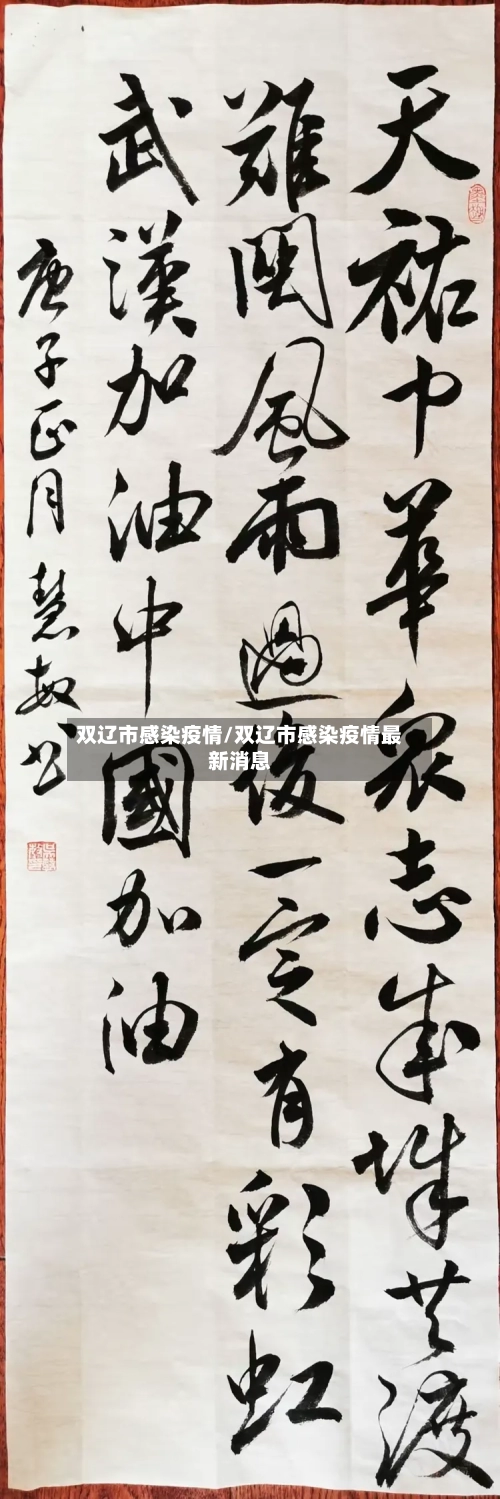 天祐中華衆志成城共渡
難関風雨過後一定有彩虹
武漢加油中國加油
庚子正月慧敏书
双辽市感染疫情/双辽市感染疫情最
新消息